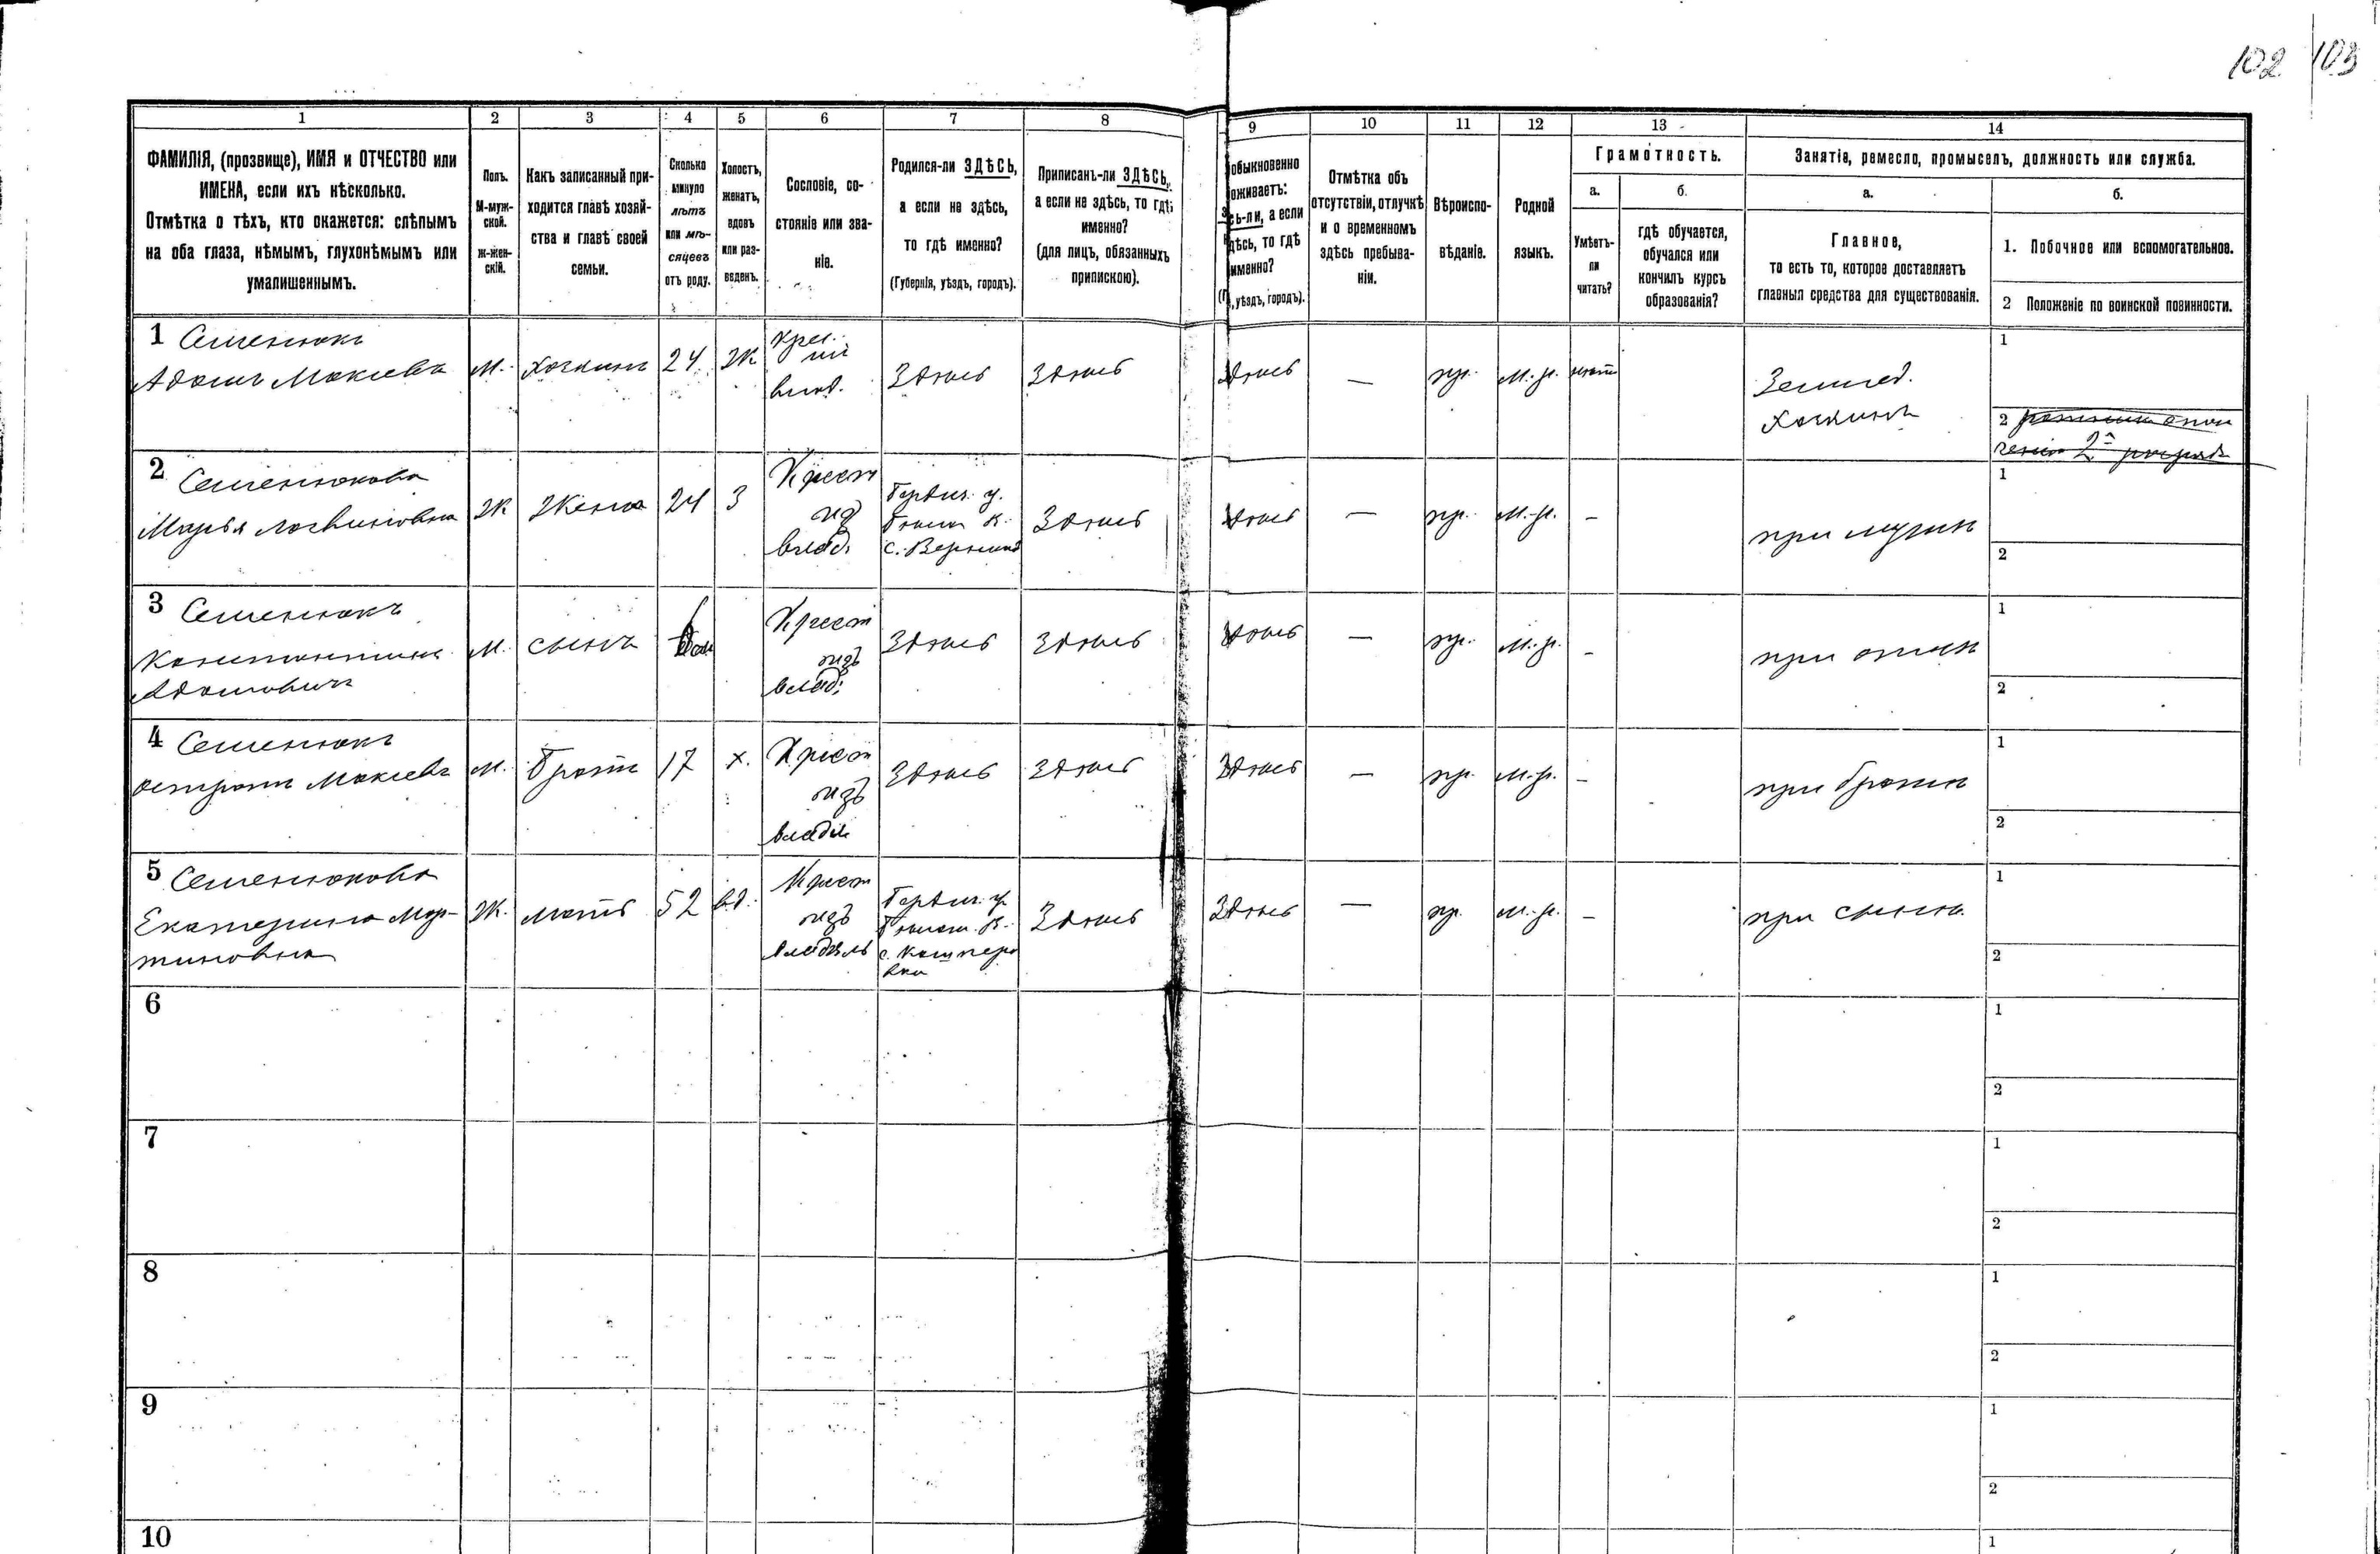 102 103
1 2 3 4 5 6 7 8 9 10 11 12 13 14
ФАМИЛІЯ, (прозвище), ИМЯ и ОТЧЕСТВО или
ИМЕНА, если ихъ нѣсколько.
Отмѣтка о тѣхъ, кто окажется: слѣпымъ
на оба глаза, нѣмымъ, глухонѣмымъ или
умалишеннымъ.
Полъ.
М-муж-
ской.
ж-жен-
скій.
Какъ записанный при-
ходится главѣ хозяй-
ства и главѣ своей
семьи.
Сколько
минуло
лѣтъ
или мѣ-
сяцевъ
отъ роду.
Холостъ,
женатъ,
вдовъ
или раз-
веденъ.
Сословіе, со-
стояніе или зва-
ніе.
Родился-ли ЗДѢСЬ,
а если не здѣсь,
то гдѣ именно?
(Губернія, уѣздъ, городъ).
Приписанъ-ли ЗДѢСЬ,
а если не здѣсь, то гдѣ
именно?
(для лицъ, обязанныхъ
припискою).
обыкновенно
оживаетъ:
сь-ли, а если
дѣсь, то гдѣ
именно?
(Г , уѣздъ, городъ).
Отмѣтка объ
отсутствіи, отлучкѣ
и о временномъ
здѣсь пребыва-
ніи.
Вѣроиспо-
вѣданіе.
Родной
языкъ.
Грамотность.
а.
Умѣетъ-
ли
читать?
б.
гдѣ обучается,
обучался или
кончилъ курсъ
образованія?
Занятіе, ремесло, промыселъ, должность или служба.
а.
Главное,
то есть то, которое доставляетъ
главныя средства для существованія.
б.
1. Побочное или вспомогательное.
2 Положеніе по воинской повинности.
1 Семенюкъ
Адамъ Мокіевъ
М.
Хозяинъ
24
Ж
Крес.
влад.
Здѣсь
Здѣсь
Здѣсь
—
пр.
м.-р.
Землед.
Хозяинъ
1
2
2 Семенюкова
Марья Логвиновна
Ж
Жена
24
З
Крест
изъ
влад.
Бердич. у.
с.
Здѣсь
Здѣсь
—
пр.
м.-р.
–
при мужѣ
1
2
3 Семенюкъ
Константинъ
Адамовичъ
М.
сынъ
Крест
изъ
влад.
Здѣсь
Здѣсь
Здѣсь
—
пр.
м.-р.
–
при отцѣ
1
2
4 Семенюкъ
Мокіевъ
М.
братъ
17
х.
Крест
изъ
владѣл
Здѣсь
Здѣсь
Здѣсь
—
пр.
м.-р.
–
при братѣ
1
2
5 Семенюкова
Екатерина Мар-
тиновна
Ж.
мать
52
вд.
Крест
изъ
владѣль
Бердич. у.
с. Кашперо
вка
Здѣсь
Здѣсь
—
пр.
м.-р.
–
при сынѣ
1
2
6
1
2
7
1
2
8
1
2
9
1
2
10
1